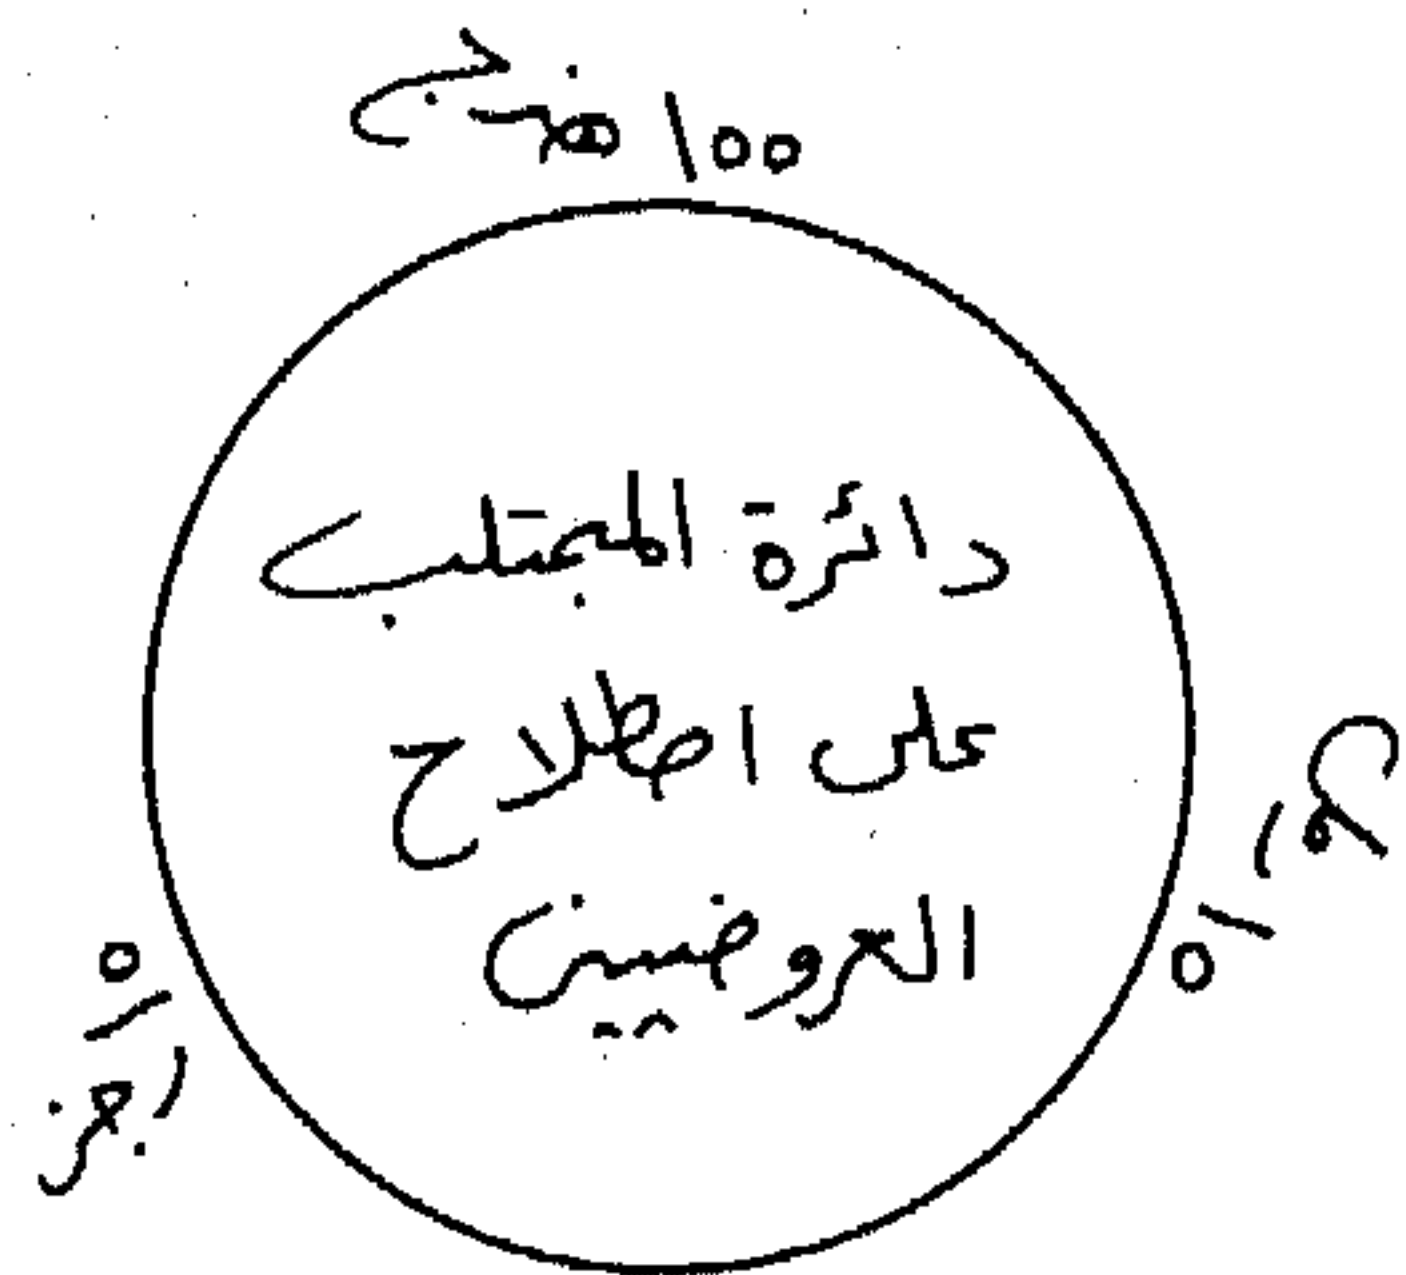 هزج ا٥٥
دائرة المجتلب
على اصطلاح
العروضيين
رمل
ا٥
ا٥
رجز